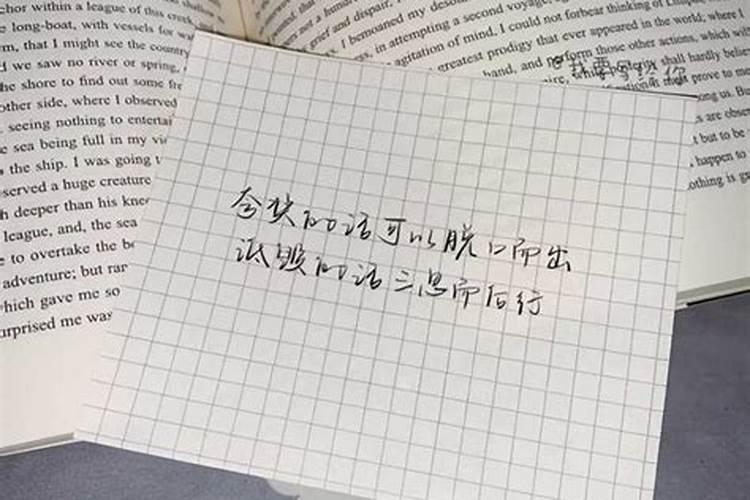 chor within a league of this creek
long-boat, with vessels for
that I might see the country
we saw no river or spring,
the shore to find out some
other side, where I observed
seeing nothing to
sea being full in my
the ship. I was going
served a huge creature
deeper than his
league, and, the sea
to overtake the
adventure; but
which gave me so
urprised me was
grief and despair, I bemoaned my
in attempting a second voyage,
agitation of mind, I could not forbear thinking of
greatest prodigy that ever appeared in the world; where I
hand, and perform those other actions, which
while posterity shall hardly
might prove to
us. But
are
but to be
happen to
othing is
我要写给你
夸奖的话可以脱口而出
诋毁的话三思而后行